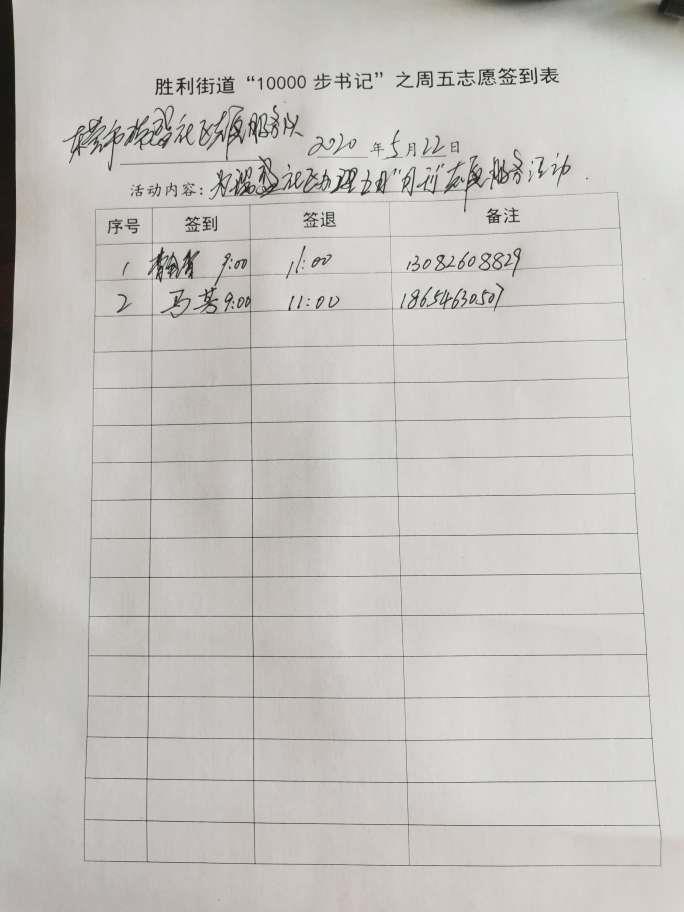 胜利街道“10000步书记”之周五志愿签到表
东营市 社区志愿服务队
2020年5月22日
活动内容: 为 社区办理五月“月刊”志愿服务活动.
序号 签到 签退 备注
1 9:00 11:00 13082608829
2 马芳 9:00 11:00 18654630507